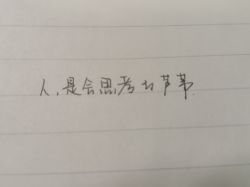 人，是会思考的芦苇